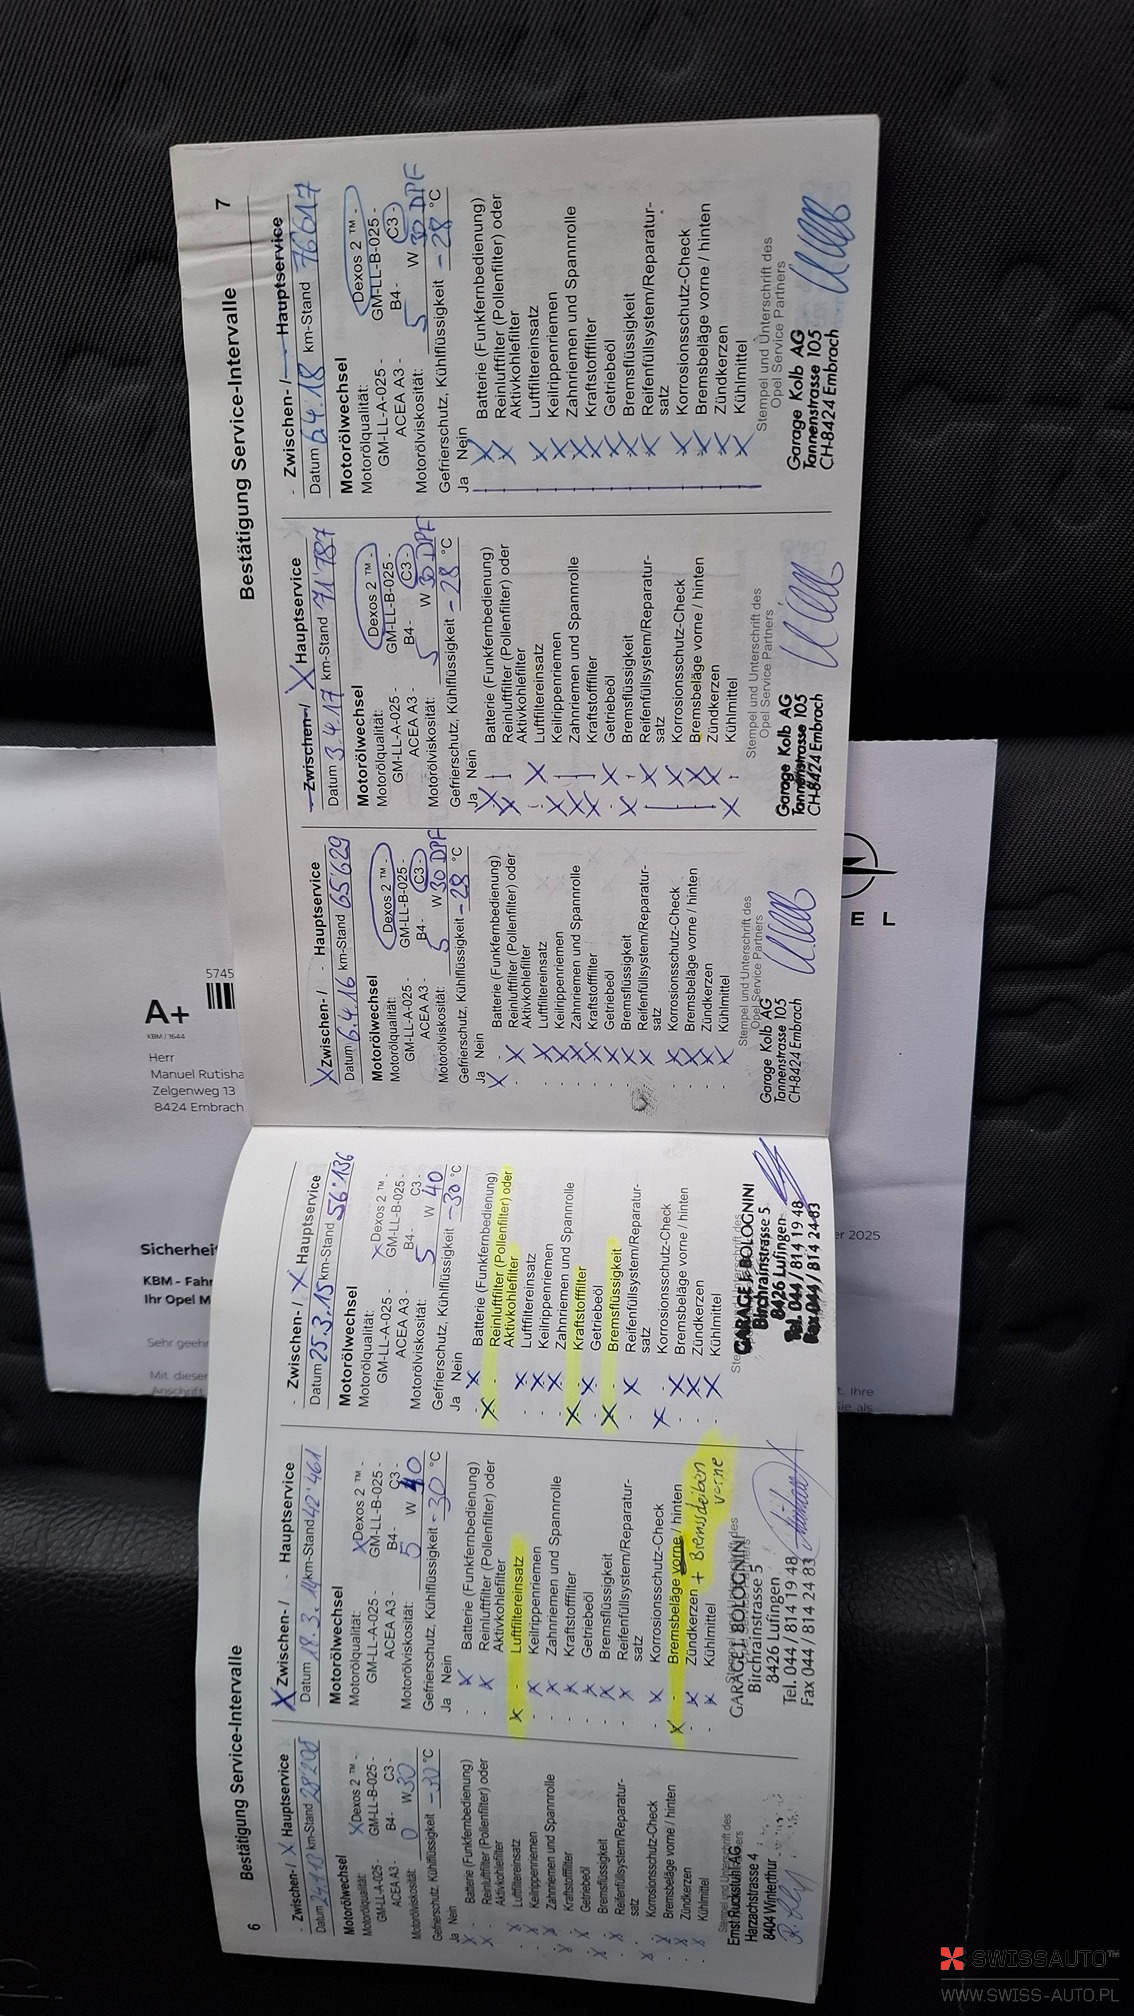 6
Bestätigung Service-Intervalle
- Zwischen- / X Hauptservice
Datum km-Stand 28'208
Motorölwechsel
Motorölqualität: X Dexos 2 ™ -
GM-LL-A-025 - GM-LL-B-025 -
ACEA A3 - B4 - C3 -
Motorölviskosität: 0 W 30
Gefrierschutz, Kühlflüssigkeit -30 °C
Ja Nein
Batterie (Funkfernbedienung)
Reinluftfilter (Pollenfilter) oder
Aktivkohlefilter
Luftfiltereinsatz
Keilrippenriemen
Zahnriemen und Spannrolle
Kraftstofffilter
Getriebeöl
Bremsflüssigkeit
Reifenfüllsystem/Reparatur-
satz
Korrosionsschutz-Check
Bremsbeläge vorne / hinten
Zündkerzen
Kühlmittel
Stempel und Unterschrift des
Ernst Ruckstuhl AG
Harzachstrasse 4
8404 Winterthur
X Zwischen- / - Hauptservice
Datum 18.3.14 km-Stand 42'461
Motorölwechsel
Motorölqualität: X Dexos 2 ™ -
GM-LL-A-025 - GM-LL-B-025 -
ACEA A3 - B4 - C3 -
Motorölviskosität: 5 W 40
Gefrierschutz, Kühlflüssigkeit -30 °C
Ja Nein
Batterie (Funkfernbedienung)
Reinluftfilter (Pollenfilter) oder
Aktivkohlefilter
Luftfiltereinsatz
Keilrippenriemen
Zahnriemen und Spannrolle
Kraftstofffilter
Getriebeöl
Bremsflüssigkeit
Reifenfüllsystem/Reparatur-
satz
Korrosionsschutz-Check
Bremsbeläge vorne / hinten
Zündkerzen + Bremsscheiben
Kühlmittel vorne
GARAGE J. BOLOGNINI
Birchrainstrasse 5
8426 Lufingen
Tel. 044 / 814 19 48
Fax 044 / 814 24 83
- Zwischen- / X Hauptservice
Datum 25.3.15 km-Stand 56'136
Motorölwechsel
Motorölqualität: X Dexos 2 ™ -
GM-LL-A-025 - GM-LL-B-025 -
ACEA A3 - B4 - C3 -
Motorölviskosität: 5 W 40
Gefrierschutz, Kühlflüssigkeit -30 °C
Ja Nein
Batterie (Funkfernbedienung)
Reinluftfilter (Pollenfilter) oder
Aktivkohlefilter
Luftfiltereinsatz
Keilrippenriemen
Zahnriemen und Spannrolle
Kraftstofffilter
Getriebeöl
Bremsflüssigkeit
Reifenfüllsystem/Reparatur-
satz
Korrosionsschutz-Check
Bremsbeläge vorne / hinten
Zündkerzen
Kühlmittel
GARAGE J. BOLOGNINI
Birchrainstrasse 5
8426 Lufingen
Tel. 044 / 814 19 48
Fax 044 / 814 24 83
Bestätigung Service-Intervalle
7
X Zwischen- / - Hauptservice
Datum 6.4.16 km-Stand 65'629
Motorölwechsel
Motorölqualität: Dexos 2 ™ -
GM-LL-A-025 - GM-LL-B-025 -
ACEA A3 - B4 - C3 -
Motorölviskosität: 5 W 30 DPF
Gefrierschutz, Kühlflüssigkeit -28 °C
Ja Nein
Batterie (Funkfernbedienung)
Reinluftfilter (Pollenfilter) oder
Aktivkohlefilter
Luftfiltereinsatz
Keilrippenriemen
Zahnriemen und Spannrolle
Kraftstofffilter
Getriebeöl
Bremsflüssigkeit
Reifenfüllsystem/Reparatur-
satz
Korrosionsschutz-Check
Bremsbeläge vorne / hinten
Zündkerzen
Kühlmittel
Stempel und Unterschrift des
Opel Service Partners
Garage Kolb AG
Tannenstrasse 105
CH-8424 Embrach
Zwischen- / X Hauptservice
Datum 3.4.17 km-Stand 71'787
Motorölwechsel
Motorölqualität: Dexos 2 ™ -
GM-LL-A-025 - GM-LL-B-025 -
ACEA A3 - B4 - C3 -
Motorölviskosität: 5 W 30 DPF
Gefrierschutz, Kühlflüssigkeit -28 °C
Ja Nein
Batterie (Funkfernbedienung)
Reinluftfilter (Pollenfilter) oder
Aktivkohlefilter
Luftfiltereinsatz
Keilrippenriemen
Zahnriemen und Spannrolle
Kraftstofffilter
Getriebeöl
Bremsflüssigkeit
Reifenfüllsystem/Reparatur-
satz
Korrosionsschutz-Check
Bremsbeläge vorne / hinten
Zündkerzen
Kühlmittel
Stempel und Unterschrift des
Opel Service Partners
Garage Kolb AG
Tannenstrasse 105
CH-8424 Embrach
- Zwischen- / Hauptservice
Datum 6.4.18 km-Stand 76617
Motorölwechsel
Motorölqualität: Dexos 2 ™ -
GM-LL-A-025 GM-LL-B-025 -
ACEA A3 - B4 - C3 -
Motorölviskosität: 5 W 30 DPF
Gefrierschutz, Kühlflüssigkeit -28 °C
Ja Nein
Batterie (Funkfernbedienung)
Reinluftfilter (Pollenfilter) oder
Aktivkohlefilter
Luftfiltereinsatz
Keilrippenriemen
Zahnriemen und Spannrolle
Kraftstofffilter
Getriebeöl
Bremsflüssigkeit
Reifenfüllsystem/Reparatur-
satz
Korrosionsschutz-Check
Bremsbeläge vorne / hinten
Zündkerzen
Kühlmittel
Stempel und Unterschrift des
Opel Service Partners
Garage Kolb AG
Tannenstrasse 105
CH-8424 Embrach
A+
5745
KBM / 1644
Herr
Manuel Rutisha
Zelgenweg 13
8424 Embrach
E L
er 2025
Sicherheit
KBM - Fahr
Ihr Opel M
Sehr geehr
Mit dieser
Anschrift
t. Ihre
ie als
SWISSAUTO™
WWW.SWISS-AUTO.PL